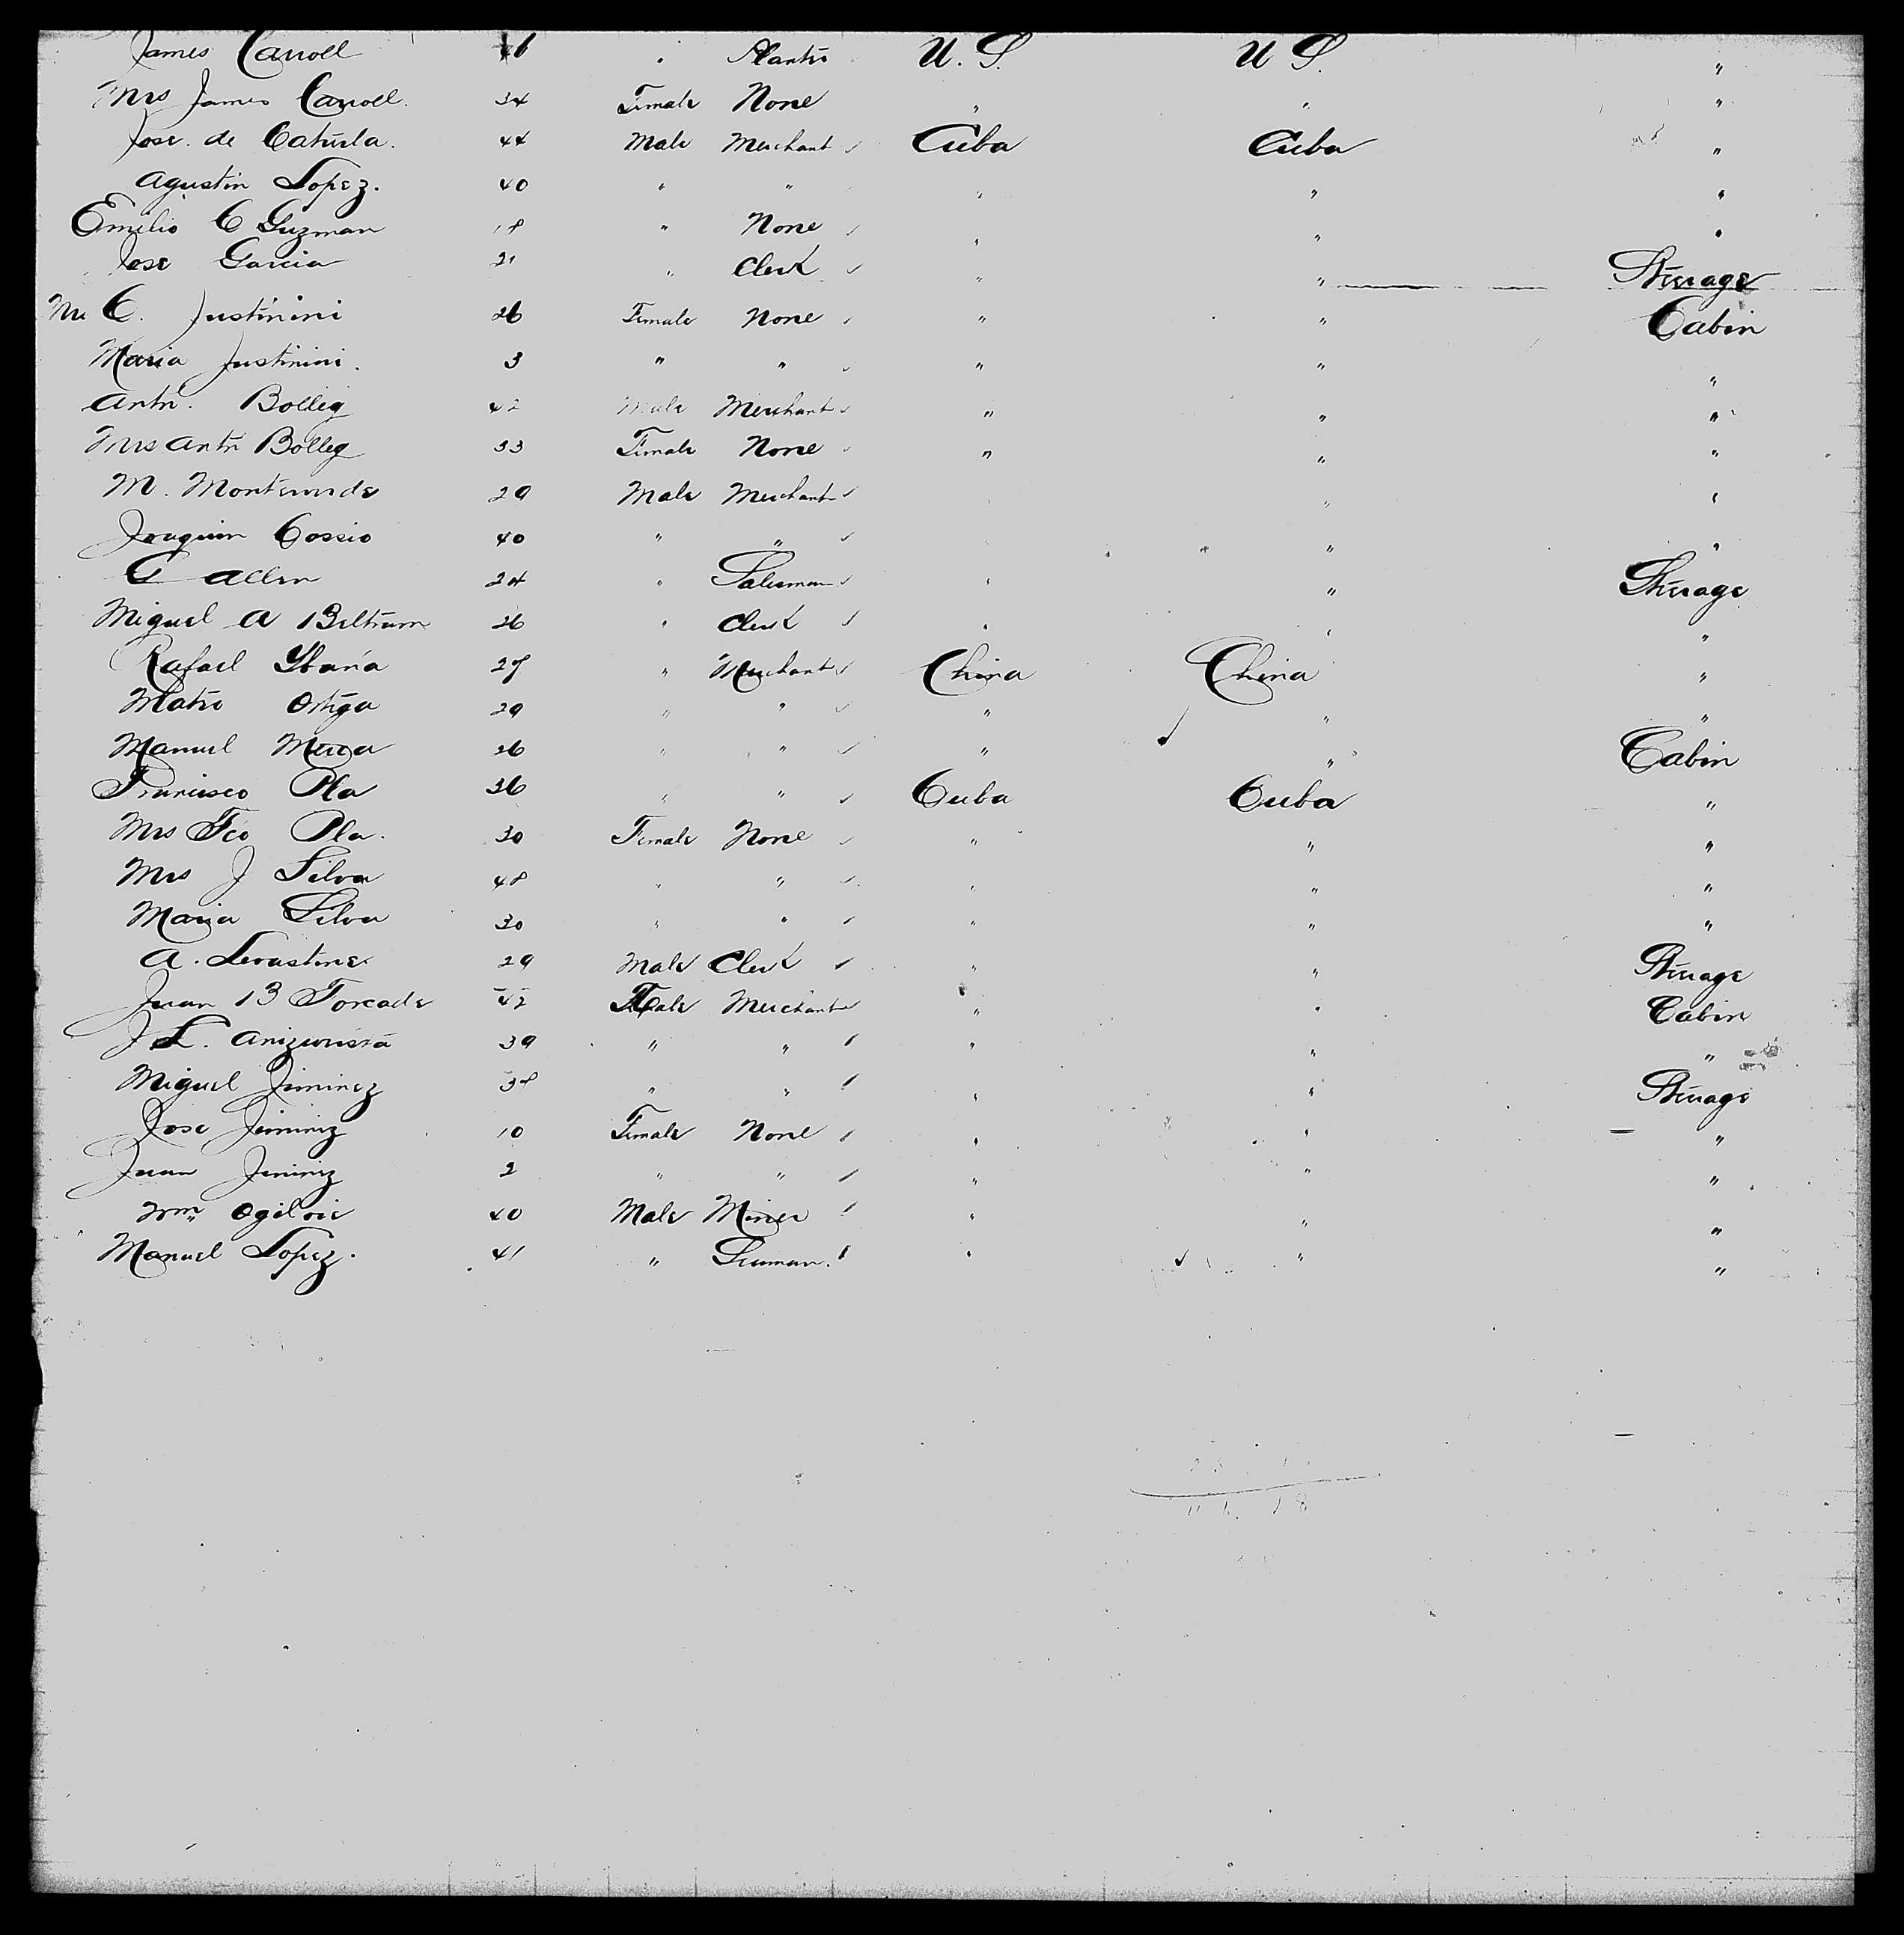 James Carroll 46 " Planter U.S. U S. "
Mrs James Carroll. 34 Female None " " "
Jose. de Caturla. 44 Male Merchant Cuba Cuba "
Agustin Lopez. 40 " " " " "
Emilio C Guzman 18 " None " " "
Jose Garcia 21 " Clerk " " Steerage
C. Justinini 26 Female None " " Cabin
Maria Justinini. 3 " " " " "
Antn. Bolleg 42 Male Merchant " " "
Mrs Antn Bolleg 33 Female None " " "
M. 29 Male Merchant " "
Joaquin Cossio 40 " " " "
G Allen 24 " Salesman " " Steerage
Miguel A Beltram 26 " Clerk " " "
Rafael Ybarra 27 " Merchant China China "
Mateo Ortega 29 " " " " "
Manuel 26 " " " " Cabin
Francisco Pla 36 " " Cuba Cuba "
Mrs Fco Pla. 30 Female None " " "
Mrs J Silva 48 " " " " "
Maria Silva 30 " " " " "
A. 29 Male Clerk " " Steerage
Juan B Forcade 42 Male Merchant " " Cabin
J L. 39 " " " " "
Miguel Jiminez 38 " " " " Steerage
Jose Jiminez 10 Female None " " "
Juan Jiminez 2 " " " " "
Wm Ogilvie 40 Male Miner " " "
Manuel Lopez. 41 " Seaman. " " "